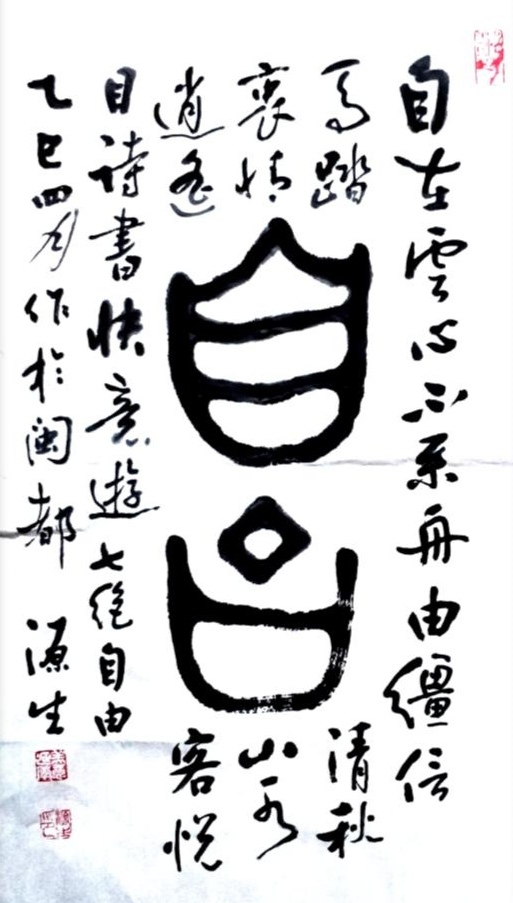 自在雲心不系舟由韁信
馬踏清秋
衷情山水
逍遙客悦
目詩書快意遊七絕自由
乙巳四月作於閩都 源生
自由